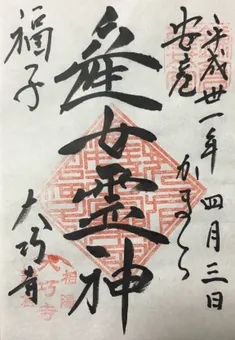 平成卅一年四月三日
かまくら
安産
産女霊神
福子
大巧寺
相陽
大巧寺